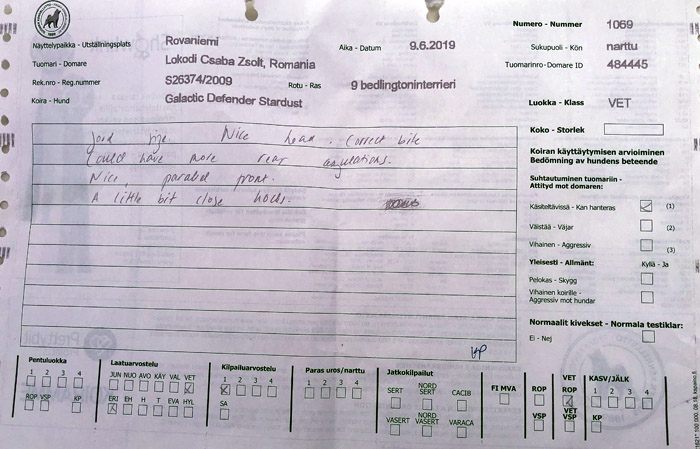 Numero - Nummer 1069
Näyttelypaikka - Utställningsplats Rovaniemi Aika - Datum 9.6.2019 Sukupuoli - Kön narttu
Tuomari - Domare Lokodi Csaba Zsolt, Romania Tuomarinro- Domare ID 484445
Rek.nro - Reg.nummer S26374/2009 Rotu - Ras 9 bedlingtoninterrieri
Koira - Hund Galactic Defender Stardust Luokka - Klass VET
Koko - Storlek
size. Nice head. Correct bite
Could have more rear angulations.
Nice parallel front.
A little bit close hocks.
Koiran käyttäytymisen arvioiminen
Bedömning av hundens beteende
Suhtautuminen tuomariin -
Attityd mot domaren:
Käsiteltävissä - Kan hanteras (1)
Väistää - Väjar (2)
Vihainen - Aggressiv (3)
Yleisesti - Allmänt: Kyllä - Ja
Pelokas - Skygg
Vihainen koirille -
Aggressiv mot hundar
Normaalit kivekset - Normala testiklar:
Ei - Nej
Pentuluokka
1 2 3 4
ROP VSP KP
Laatuarvostelu
JUN NUO AVO KÄY VAL VET
ERI EH H T EVA HYL
Kilpailuarvostelu
1 2 3 4
SA
Paras uros/narttu
1 2 3 4
Jatkokilpailut
SERT NORD SERT CACIB
VASERT NORD VASERT VARACA
FI MVA
ROP
VSP
VET ROP
VET VSP
KASV/JÄLK
1 2 3 4
KP